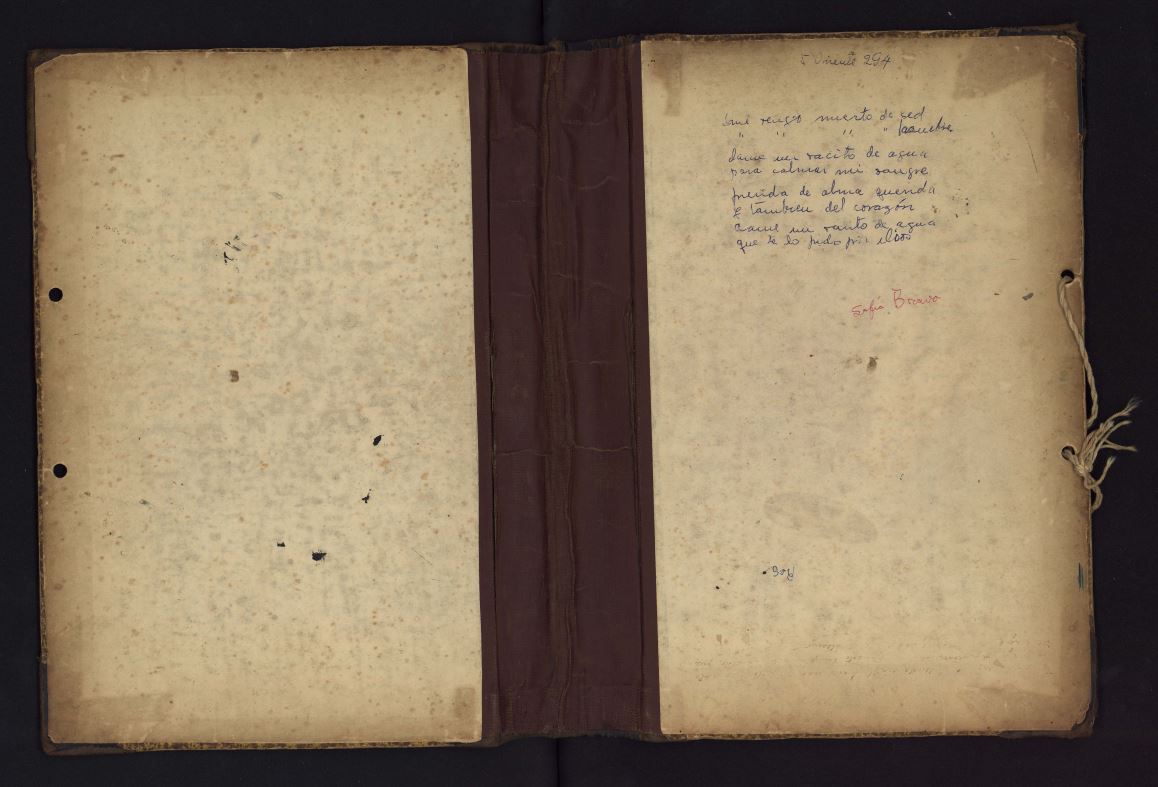 S Vicente 294
que vengo muerto de sed
" " " " hambre
dame un vacito de agua
para calmar mi sangre
prenda de alma querida
y tambien del corazón
dame un vasito de agua
que te lo pido por
Sofia Bravo